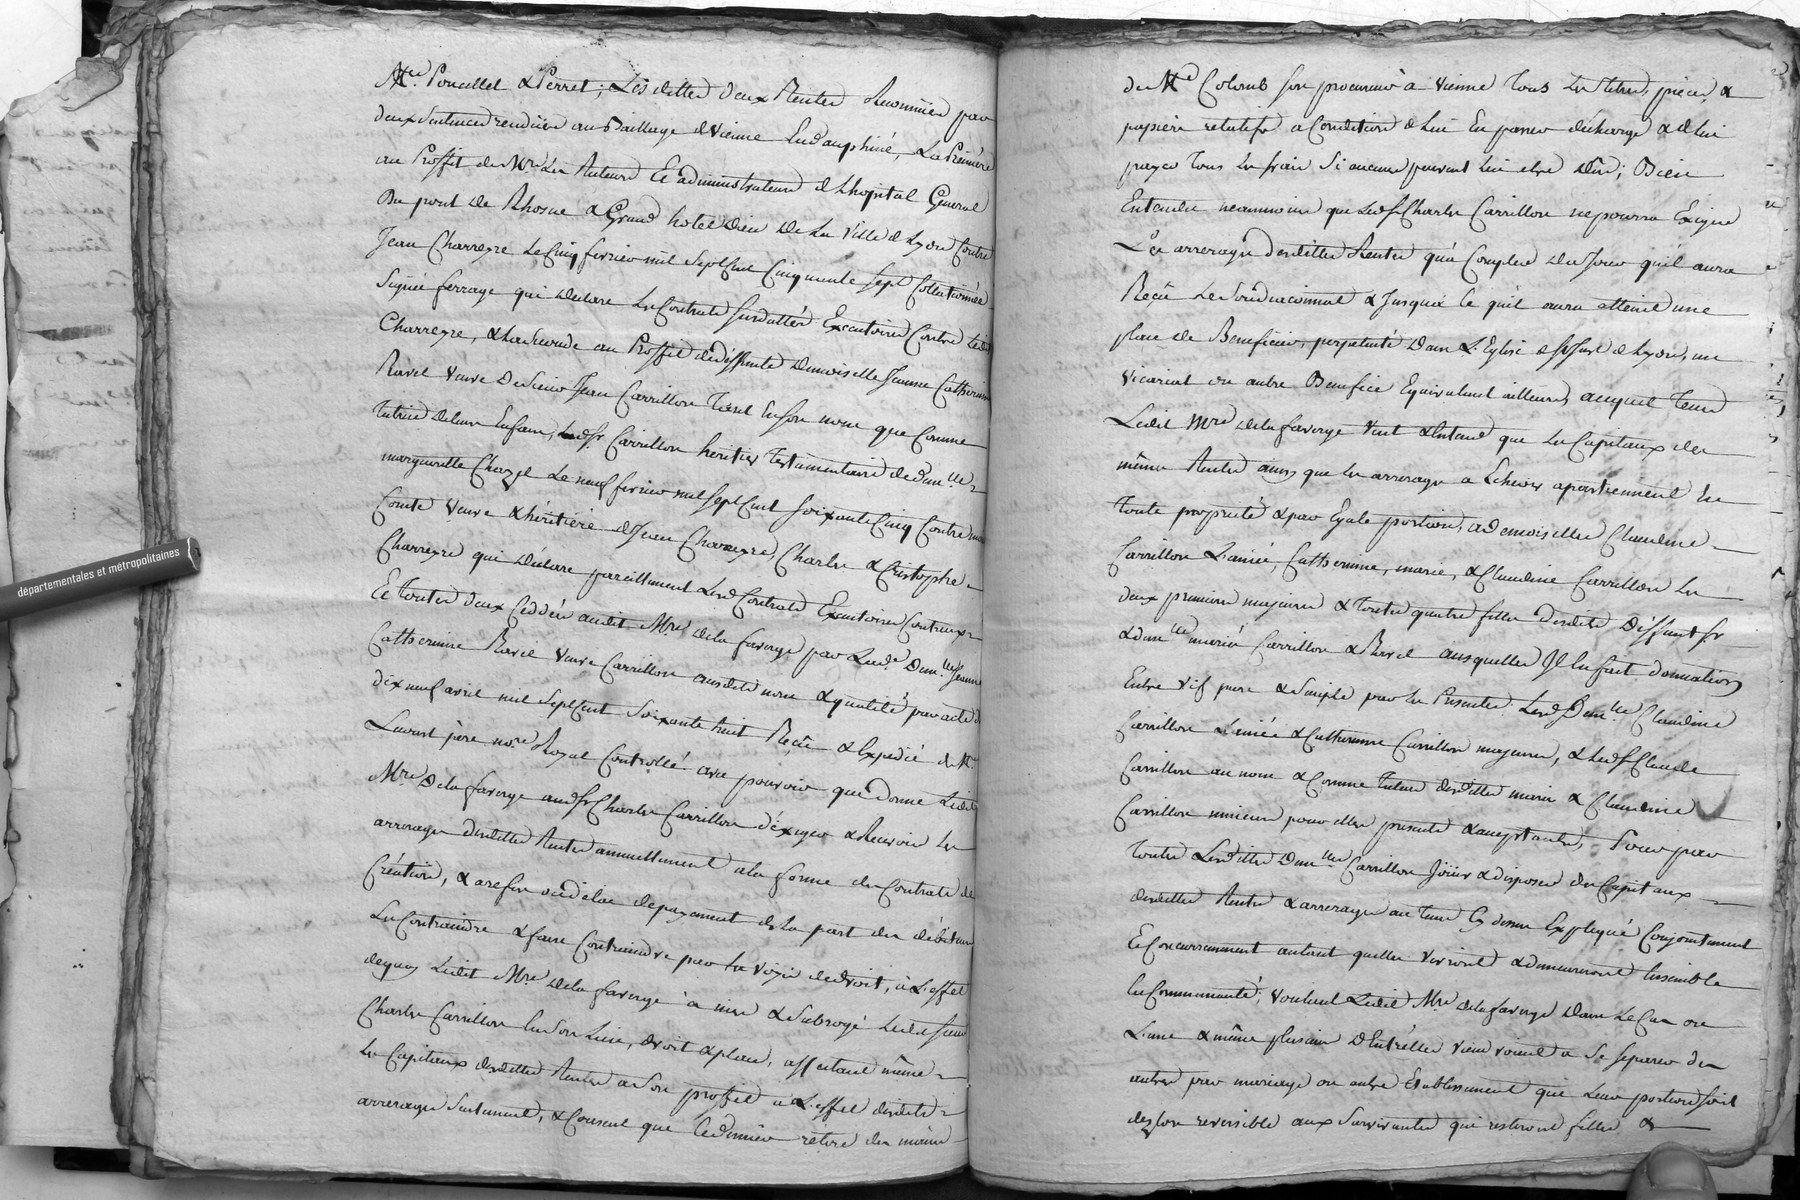 Mes. Poncellet & Perret; Lesdittes deux Rentes Reconnües par
deux Sentences rendües au Baillage de Vienne En dauphiné, La Premiere
au Proffit de Mrs. Les Recteurs Et administrateurs de L'hopital General
Du pont de Rhosne & Grand hotel Dieu De La Ville de Lyon Contre
Jean Charreyre Le Cinq fevrier mil Sept Cent Cinquante Sept Collationnée
Signée ferrage qui Declare Les Contrats susdattés Executoires Contre Ledit
Charreyre, & La Seconde au Proffit de deffunte Demoiselle Jeanne Catherinne
Ravel Veuve De Sieur Jean Carrillon Tant En son nom que Comme
Tutrice de Leurs Enfans, Ledit Sr. Carrillon heritier Testamentaire de dam.lle
margueritte Chazel Le neuf fevrier mil Sept Cent Soixante Cinq Contre
Comte Veuve & héritiere de Jean Charreyre, Charles & Christophe
Charreyre qui Déclare pareillement Lesd. Contrats Executoires Contreux
Et toutes deux Ceddées audit Mre. de la faverge par Lad.e Dam.lle Jeanne
Catherinne Ravel Veuve Carrillon ausdits nom & qualité par acte du
dix neuf avril mil Sept Cent Soixante huit Reçu & Expedié de Me.
Laurat père nore. Royal Controllé avec pouvoir que Donne Ledit
Mre. De la faverge aud. Sr. Charles Carrillon d'éxiger & Recevoir Les
arrerages desdittes Rentes annuellement a la forme des Contrats de
Création, & a refus ou délai de payement de la part des débiteurs
Les Contraindre & faire Contraindre par les voyes de droit, à L'effet
de quoy Ledit Mre. de la faverge à mis & Subrogé Ledit Sieur
Charles Carrillon En son Lieu, droit & place, affectant même
Les Capitaux desdittes Rentes a Son proffit à L'effet desdits
arrerages Seulement, & Consent que Ce dernier retire des mains
de Me. Colomb Son procureur à Vienne Tous Les titres, pièces &
papiers relatifs a Condition de Lui En passer décharge & de lui
payer Tous Les frais Si aucuns peuvent lui etre Dûs; Bien
Entendu neammoins que Led. Sr. Charles Carrillon ne pourra Exiger
Les arrerages desdittes Rentes qu'à Compter du Jour qu'il aura
Reçu Le Soudiaconnat & Jusqu'a Ce qu'il aura atteint une
place de Beneficier, perpetuité Dans L'Eglise de St. Just de Lyon, un
Vicariat ou autre Benefice Equivalent ailleurs, auquel Tems
Ledit Mre. de la faverge Veut & Entend que Les Capitaux des
mêmes Rentes ainsy que les arrerages a Echeoir apartiennent En
Toute proprieté & par Egale portion, a demoiselles Claudine
Carrillon L'ainée, Catherinne, marie, & Claudine Carrillon Les
deux premieres majeures & Toutes quatre filles desdits Deffunts Sr.
& dam.lle mariés Carrillon & Ravel ausquelles Il En fait donnation
Entre Vifs pure & Simple par Les Presentes Lesd. Dam.lles Claudine
Carrillon L'ainée & Catherinne Carrillon majeures, & Led. Sr. Claude
Carrillon au nom & Comme Tuteur desdittes marie & Claudine
Carrillon mineures pour elles presents & acceptants, Pour par
Toutes Lesdittes Dam.lles Carrillon Joüir & disposer des Capitaux
desdittes Rentes & arrerages au tems Cy dessus Expliqué Conjointement
Et Concurremment autant qu'elles Vivront & demeureront Ensemble
En Communauté; Voulant Ledit Mre. de la faverge Dans Le Cas ou
L'une & même plusieurs D'Entr'elles Viendroient a Se Separer des
autres par mariage ou autre Etablissement que Leur portion Soit
deslors reversible aux Survivantes qui resteront filles &
départementales et métropolitaines